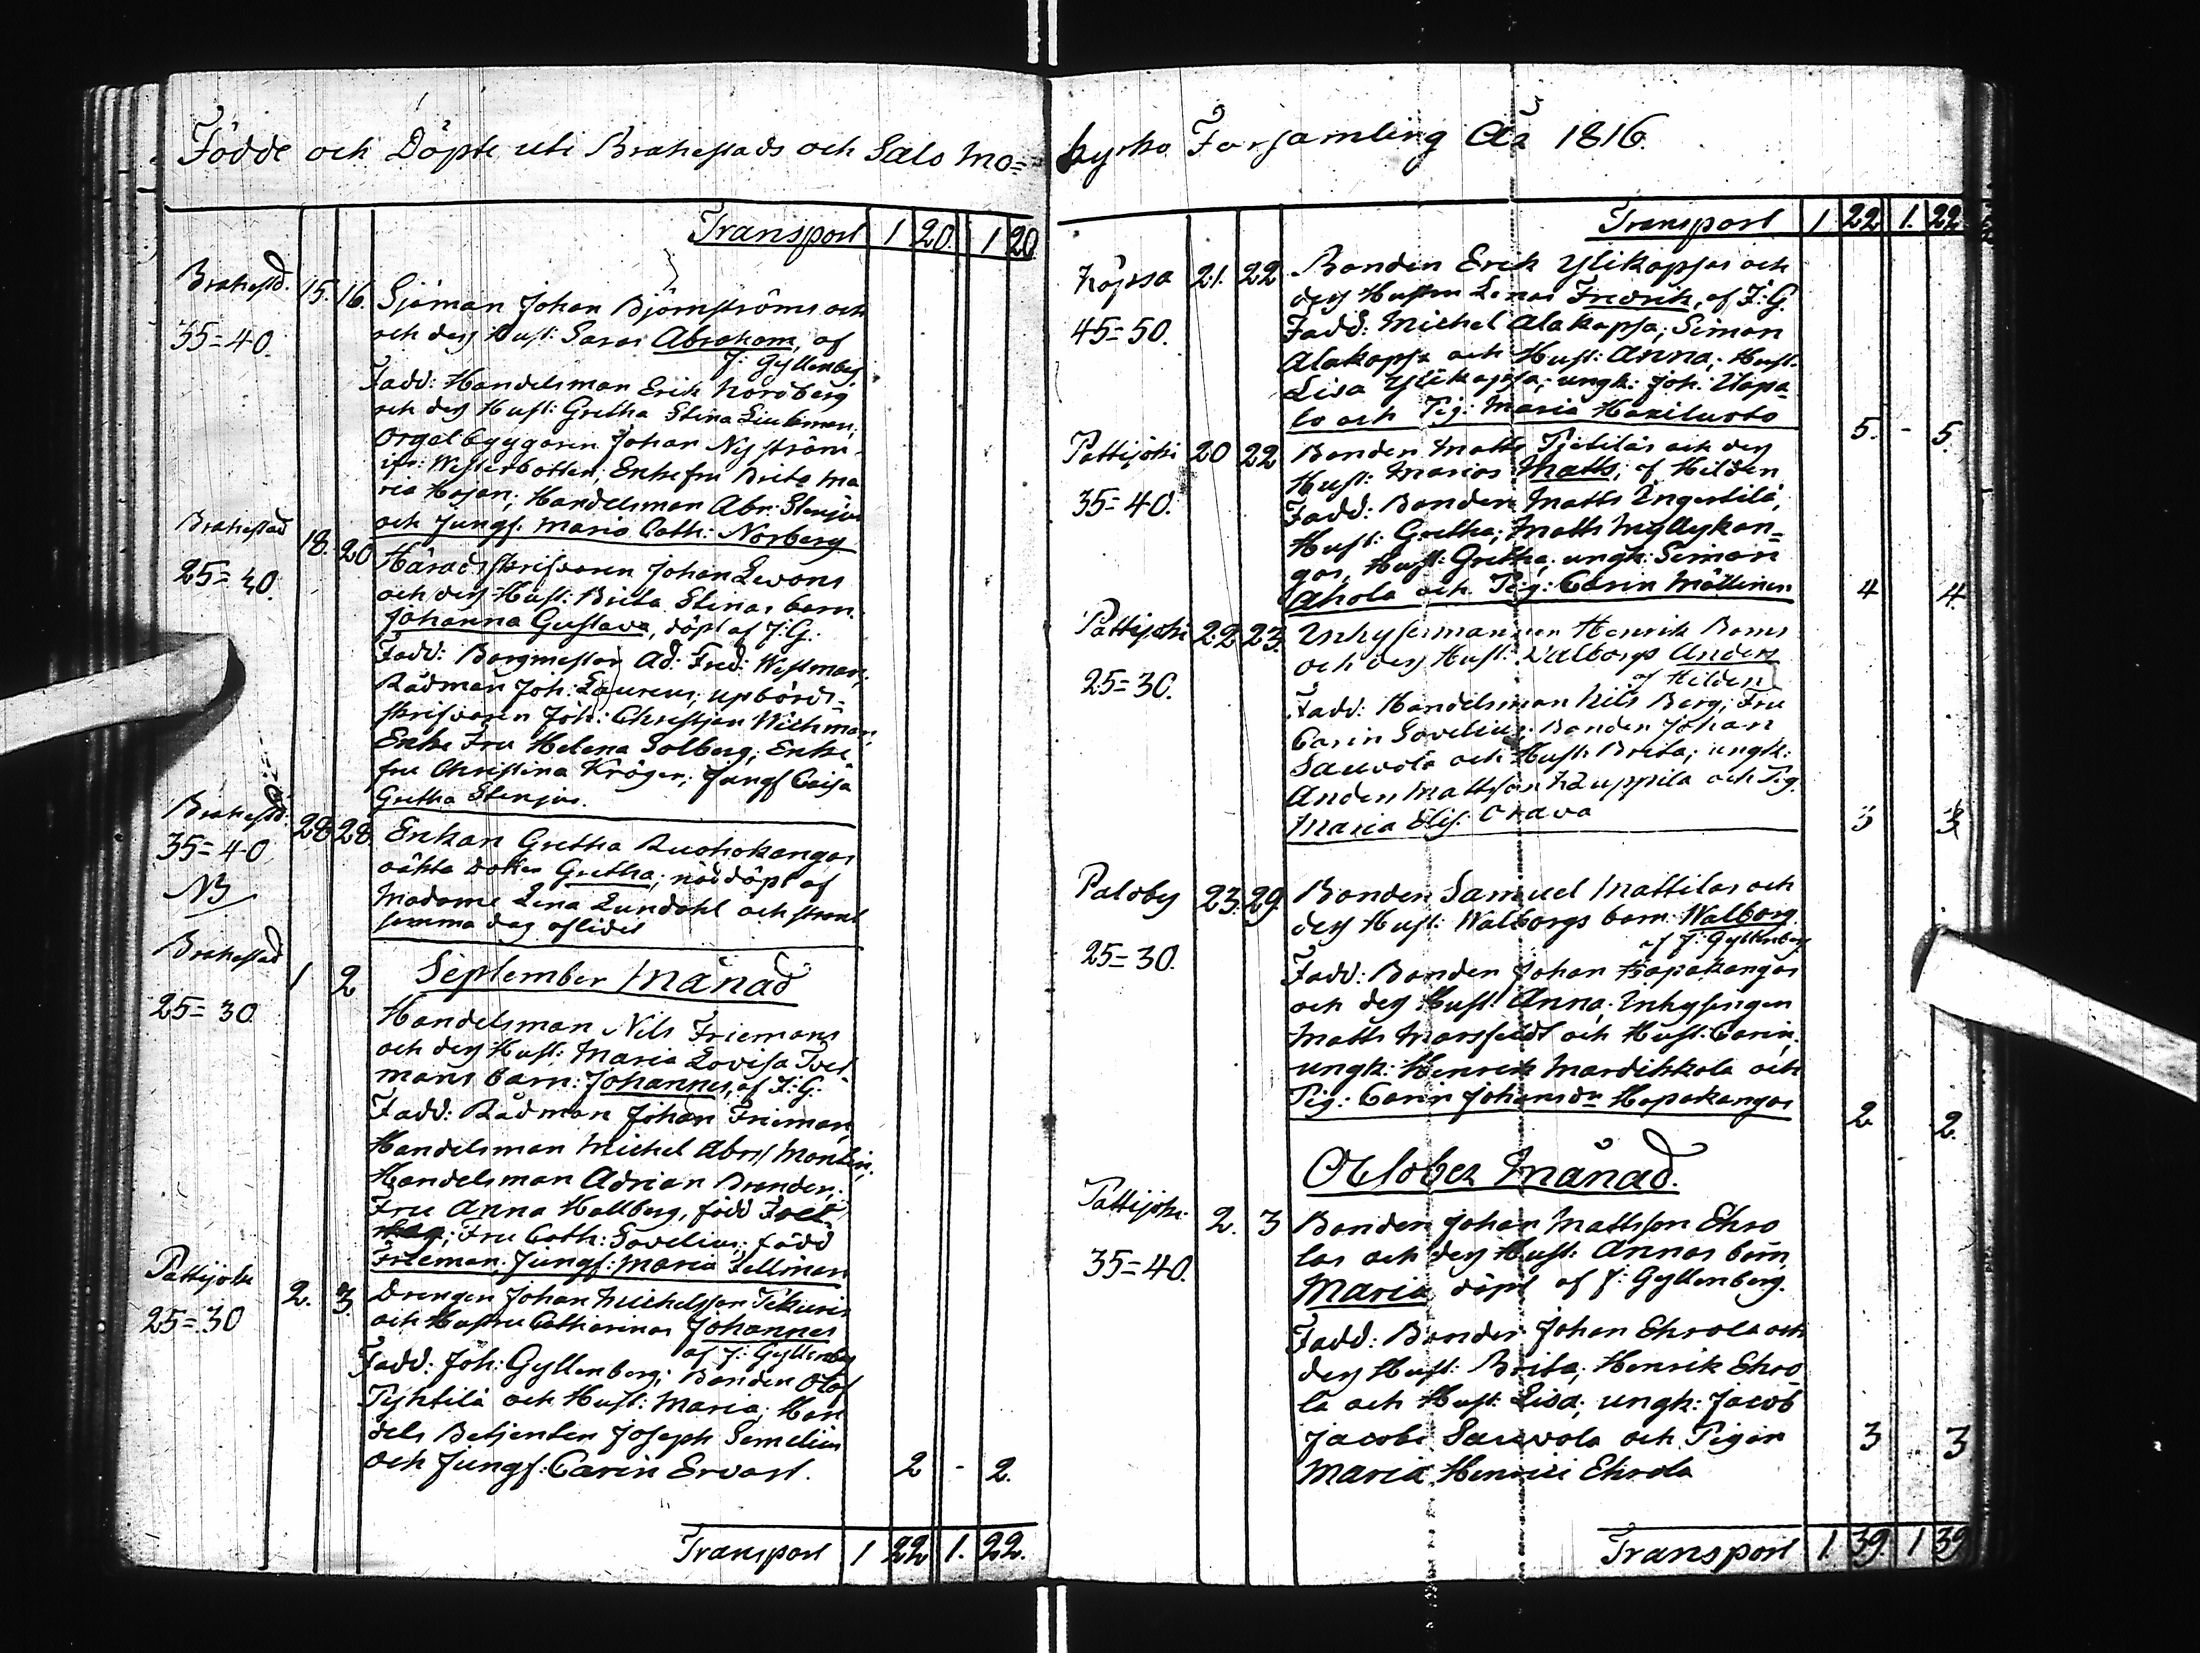 Födde och Döpte uti Brahestads och Salo Mo=
Transport 1 20. 1 20
Brahestd. 15. 16. Sjöman Johan Björnströms och
35=40. och dess Hust: Saras Abraham, af
J: Gyllenberg
Fadd: Handelsman Erik Nordberg
och dess Hust: Gretha Stina
Orgelbyggaren Johan Nyström
ifr: Westerbotten, Enkefru Brita Ma
ria Hajan; Handelsman Abr: Stenjus
och Jungf: Maria Cath: Norberg
Brahestad 18. 20 Häradsskrifvaren Johan Levons
25=40. och dess Hust: Brita Stinas barn
Johanna Gustava, döpt af J:G:
Fadd: Borgmestar Ad: Fred: Westman;
Rådman Joh: Laureus; upbörds=
skrifvaren Joh: Christjan Wichman;
Enke Fru Helena Solberg; Enke
fru Christina Kröger; Jungf Caisa
Gretha Stenjus.
Brahestd. 28 28. Enkan Gretha Ruohokangas
35=40 oäkta dotter Gretha; nöddöpt af
NB Madame Lena Lundahl och strax
samma dag afliden
September Månad
Brahestad 1 2
25=30 Handelsman Nils Friemans
och dess Hust: Maria Lovisa
mans barn: Johannes, af J:G:
Fadd: Rådman Johan Frieman,
Handelsman Michel Abrs Montin;
Handelsman Adrian Brander;
Fru Anna Hallberg, född
Fru Cath: Sovelius; född
Frieman. Jungf: Maria Fellman
Pattijoki 2. 3. Drengen Johan Michelsson
25=30 och Hustru Catharinas Johannes
af J: Gyllenberg
Fadd: Joh: Gyllenberg; Bonden Olof
och Hust: Maria; Han
dels Betjenten Joseph
och Jungf: Carin Ervast. 2 - 2.
Transport 1 22 1. 22.
kyrko Församling År 1816.
Transport 1 22 1. 22
Kopsa 21. 22 Bonden Erik Ylikopsas och
45=50. dess Hustru Lenas Fredrik, af J:G.
Fadd: Michel Alakopsa; Simon
Alakopsa och Hust: Anna; Hust:
Lisa Ylikopsa; ungk: Joh:
lo och Pig: Maria 5. - 5.
Pattijoki 20 22 Bonden Matts och dess
35=40. Hust: Marias Matts; af Hilden
Fadd: Bonden Matts
Hust: Gretha; Matts Myllykan=
gas, Hust: Gretha, ungk: Simon
Ahola och Pig: Carin Möllinen 4 4.
Pattijoki 22 23. Inhysesmannen Henrik Boms
25=30. och dess Hust: Walborgs Anders
af Hilden
Fadd: Handelsman Nils Berg; Fru
Carin Sovelius; Bonden Johan
Sauvola och Hust: Brita; ungk:
Anders Mattsson Kauppila och Pig.
Maria Elis: Orava 3 3
Paloby 23. 29. Bonden Samuel Mattilas och
dess Hust: Walborgs barn: Walborg
af J: Gyllenberg
25=30. Fadd: Bonden Johan Hapakangas
och dess Hust: Anna; Inhysingen
Matts och Hust: Carin;
ungk: Henrik Mardikkola och
Pig: Carin Johansdr Hapakangas 2 2.
October Månad.
Pattijoki 2. 3 Bonden Johan Mattsson Ehro
35=40. las och dess Hust: Annas barn,
Maria döpt af J: Gyllenberg.
Fadd: Bonden Johan Ehrola och
dess Hust: Brita; Henrik Ehro
la och Hust: Lisa; ungk: Jacob
Jacobs Sauvola och Pigan 3 3
Maria Henrici Ehrola
Transport 1. 39. 1 39